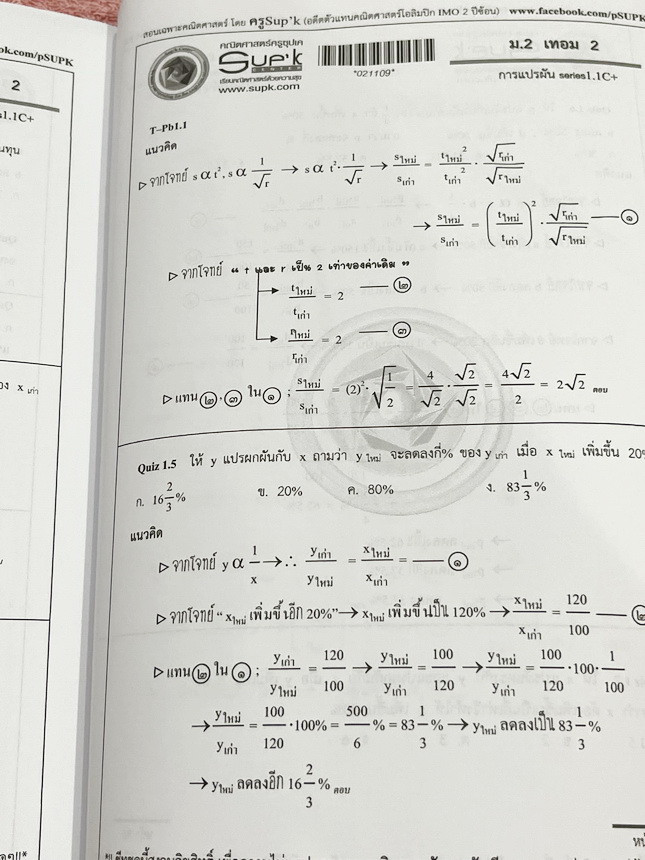 สอนเฉพาะคณิตศาสตร์ โดย ครูSup'k (อดีตตัวแทนคณิตศาสตร์โอลิมปิก IMO 2 ปีซ้อน) www.facebook.com/pSUPK
ok.com/pSUPK
คณิตศาสตร์ครูซุปเค
Sup'k
CENTER
เรียนคณิตศาสตร์ด้วยความสุข
www.supk.com
*021109*
ม.2 เทอม 2
การแปรผัน series1.1C+
2
s1.1C+
T-Pb1.1
แนวคิด
▷ จากโจทย์ s α t², s α 1/√r → s α t²·1/√r → sใหม่/sเก่า = tใหม่²/tเก่า² · √rเก่า/√rใหม่
→ sใหม่/sเก่า = (tใหม่/tเก่า)² · √rเก่า/√rใหม่ — ①
▷ จากโจทย์ “ t และ r เป็น 2 เท่าของค่าเดิม ”
tใหม่/tเก่า = 2 — ②
rใหม่/rเก่า = 2 — ③
▷ แทน ②, ③ ใน ① ; sใหม่/sเก่า = (2)²·√(1/2) = 4/√2 · √2/√2 = 4√2/2 = 2√2 ตอบ
อง x เก่า
Quiz 1.5 ให้ y แปรผกผันกับ x ถามว่า y ใหม่ จะลดลงกี่% ของ y เก่า เมื่อ x ใหม่ เพิ่มขึ้น 20%
ก. 16 2/3 % ข. 20% ค. 80% ง. 83 1/3 %
แนวคิด
▷ จากโจทย์ y α 1/x → ∴ yเก่า/yใหม่ = xใหม่/xเก่า = — ①
▷ จากโจทย์ “ xใหม่ เพิ่มขึ้นอีก 20%” → xใหม่ เพิ่มขึ้นเป็น 120% → xใหม่/xเก่า = 120/100 — ②
▷ แทน ② ใน ① ; yเก่า/yใหม่ = 120/100 → yใหม่/yเก่า = 100/120 → yใหม่/yเก่า = 100/120 · 100 · 1/100
→ yใหม่/yเก่า = 100/120 · 100% = 500/6 % = 83 1/3 % → yใหม่ ลดลงเป็น 83 1/3 %
→ yใหม่ ลดลงอีก 16 2/3 % ตอบ